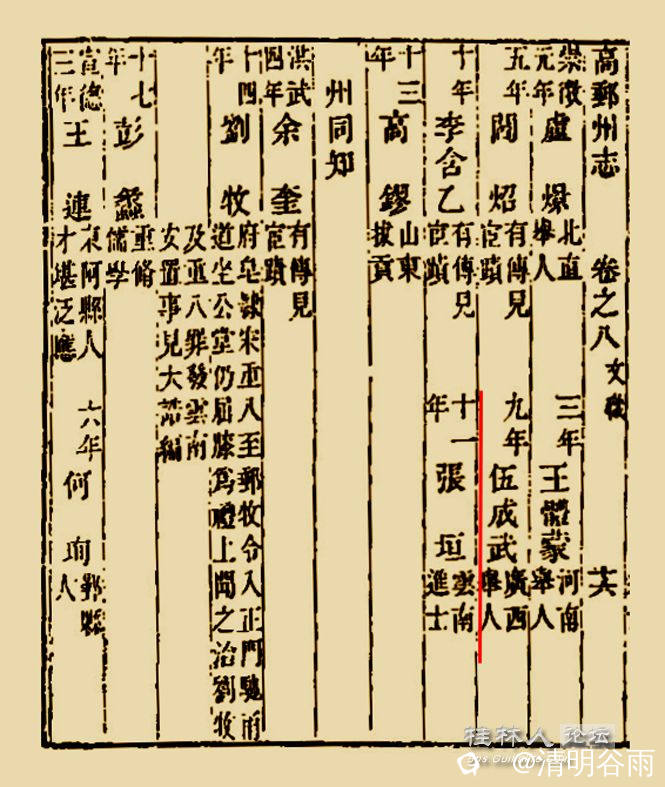 高郵州志 卷之八 文秩 十六
元年 盧 爌 北直舉人 三年 王體蒙 河南舉人
五年 閻 炤 有傳見宦蹟 九年 伍成武 廣西舉人
十年 李含乙 有傳見宦蹟 十一年 張 垣 雲南進士
十三年 高 鏐 山東拔貢
州同知
洪武四年 余 奎 有傳見宦蹟
十四年 劉 牧 府皂隸宋重八至郵牧令入正門馳甬道坐公堂仍屈膝爲禮上聞之治劉牧
及重八罪發雲南安置事見大誥編
十七年 彭 蠡 重脩儒學
宣德三年 王 連 東阿縣人才堪泛應 六年 何 珣 縣人
桂林人论坛
@清明谷雨